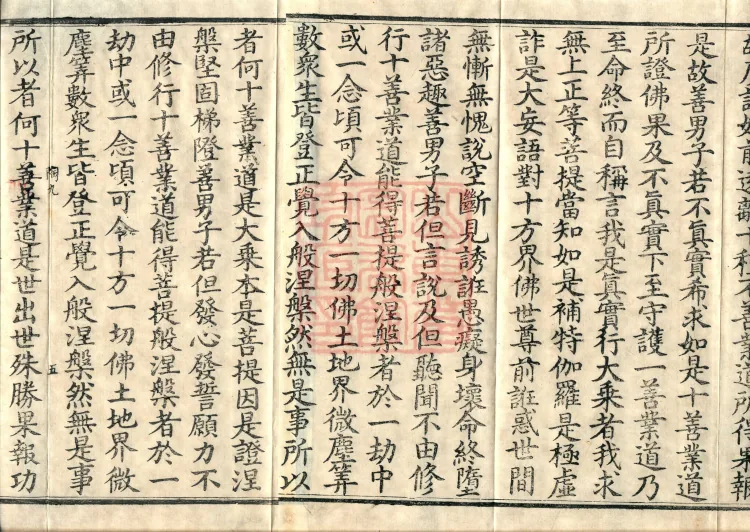 前遠離十種不善業道所得果報
是故善男子若不真實希求如是十善業道
所證佛果及不真實下至守護一善業道乃
至命終而自稱言我是真實行大乘者我求
無上正等菩提當知如是補特伽羅是極虛
詐是大妄語對十方界佛世尊前誑惑世間
無慚無愧說空斷見誘誑愚癡身壞命終墮
諸惡趣善男子若但言說及但聽聞不由修
行十善業道能得菩提般涅槃者於一劫中
或一念頃可令十方一切佛土地界微塵筭
數衆生皆登正覺入般涅槃然無是事所以
者何十善業道是大乘本是菩提因是證涅
槃堅固梯隥善男子若但發心發誓願力不
由修行十善業道能得菩提般涅槃者於一
劫中或一念頃可令十方一切佛土地界微
塵筭數衆生皆登正覺入般涅槃然無是事
五
所以者何十善業道是世出世殊勝果報功